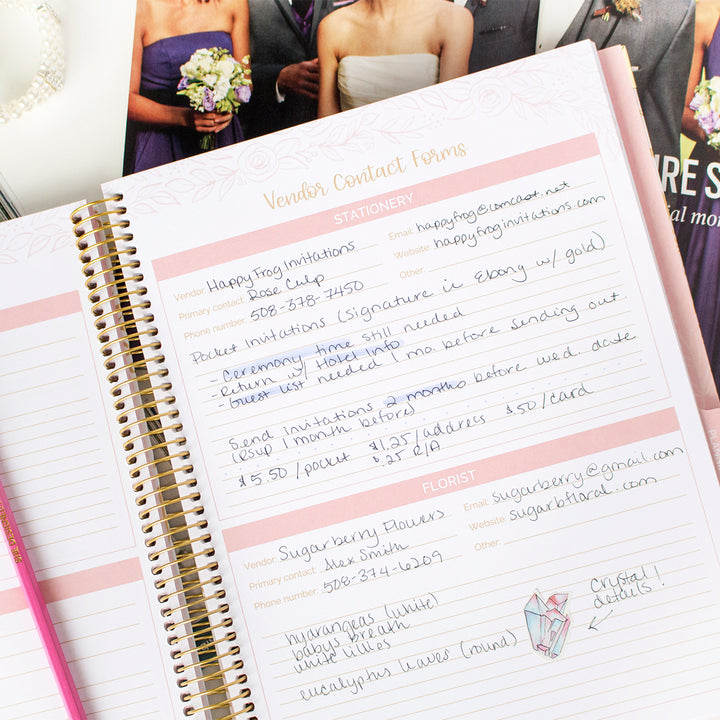 RE S
ial mo
Vendor Contact Forms
STATIONERY
Vendor: Happy Frog Invitations
Primary contact: Rose Culp
Phone number: 508-378-7450
Email: happyfrog@comcast.net
Website: happyfroginvitations.com
Other:
Pocket Invitations (signature in Ebony w/ gold)
- Ceremony time still needed
- Return w/ Hotel Info
- Guest list needed 1 mo. before sending out
Send invitations 2 months before wed. date
(RSVP 1 month before)
$5.50/pocket $1.25/address $.50/card
$.25 R/A
FLORIST
Vendor: Sugarberry Flowers
Primary contact: Alex Smith
Phone number: 508-374-6209
Email: sugarberry@gmail.com
Website: sugarbfloral.com
Other:
hydrangeas (white)
baby's breath
white lilies
eucalyptus leaves (round)
crystal!
details!